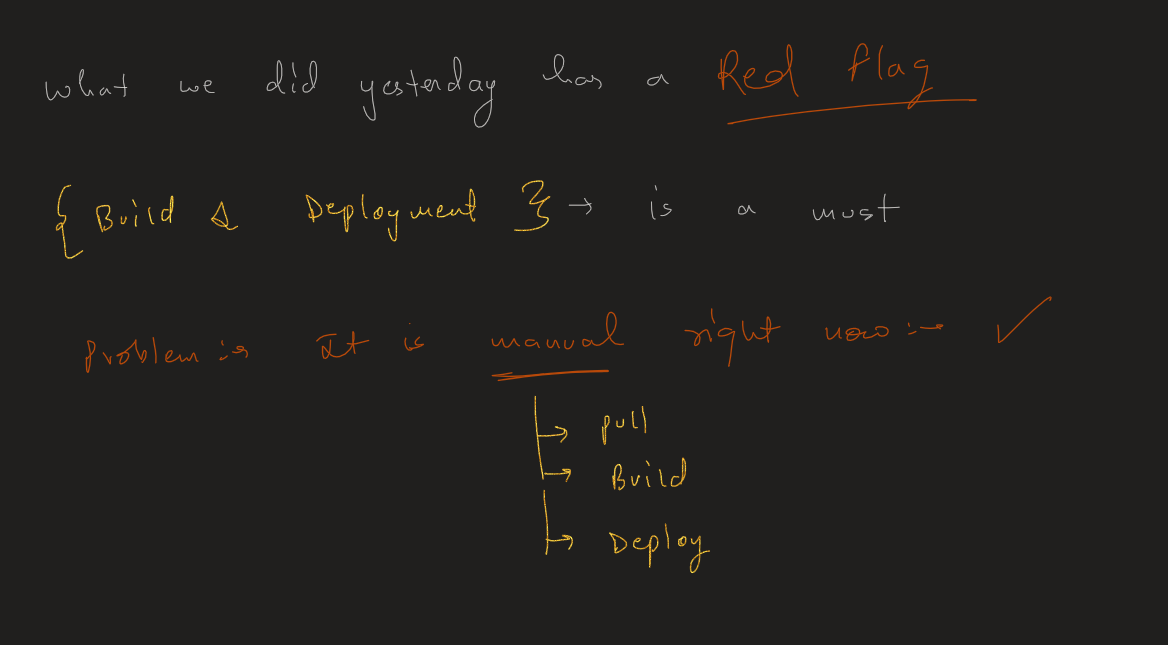 what we did yesterday has a Red flag
{ Build & Deployment } → is a must
Problem :→ It is manual right now :→ ✓
→ pull
→ Build
→ Deploy